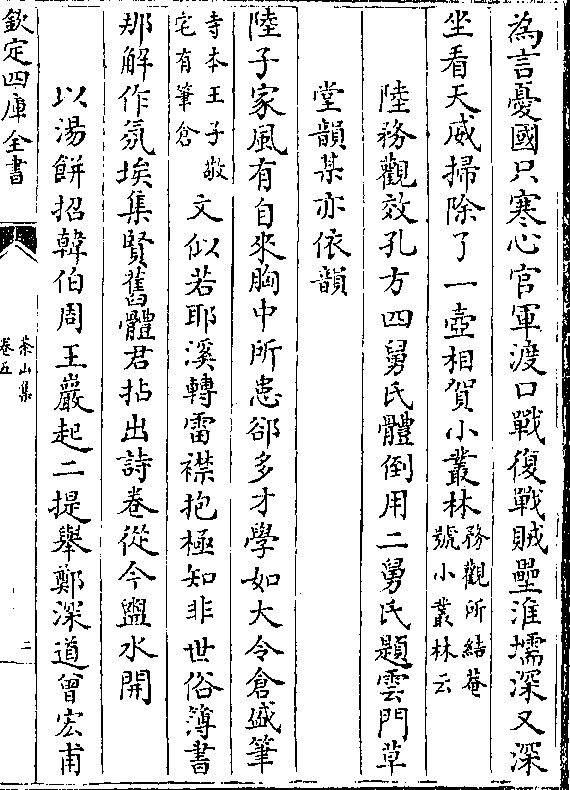 為言憂國只寒心官軍渡口戰復戰賊壘淮壖深又深
坐看天威掃除了一壺相賀小叢林務觀所結菴號小叢林云
陸務觀效孔方四舅氏體倒用二舅氏題雲門草
堂韻某亦依韻
陸子家風有自來胸中所患郤多才學如大令倉盛筆
寺本王子敬宅有筆倉文似若耶溪轉雷襟抱極知非世俗簿書
那解作氛埃集賢舊體君拈出詩卷從今盥水開
以湯餅招韓伯周王巖起二提舉鄭深道曾宏甫
欽定四庫全書
茶山集
卷五
二